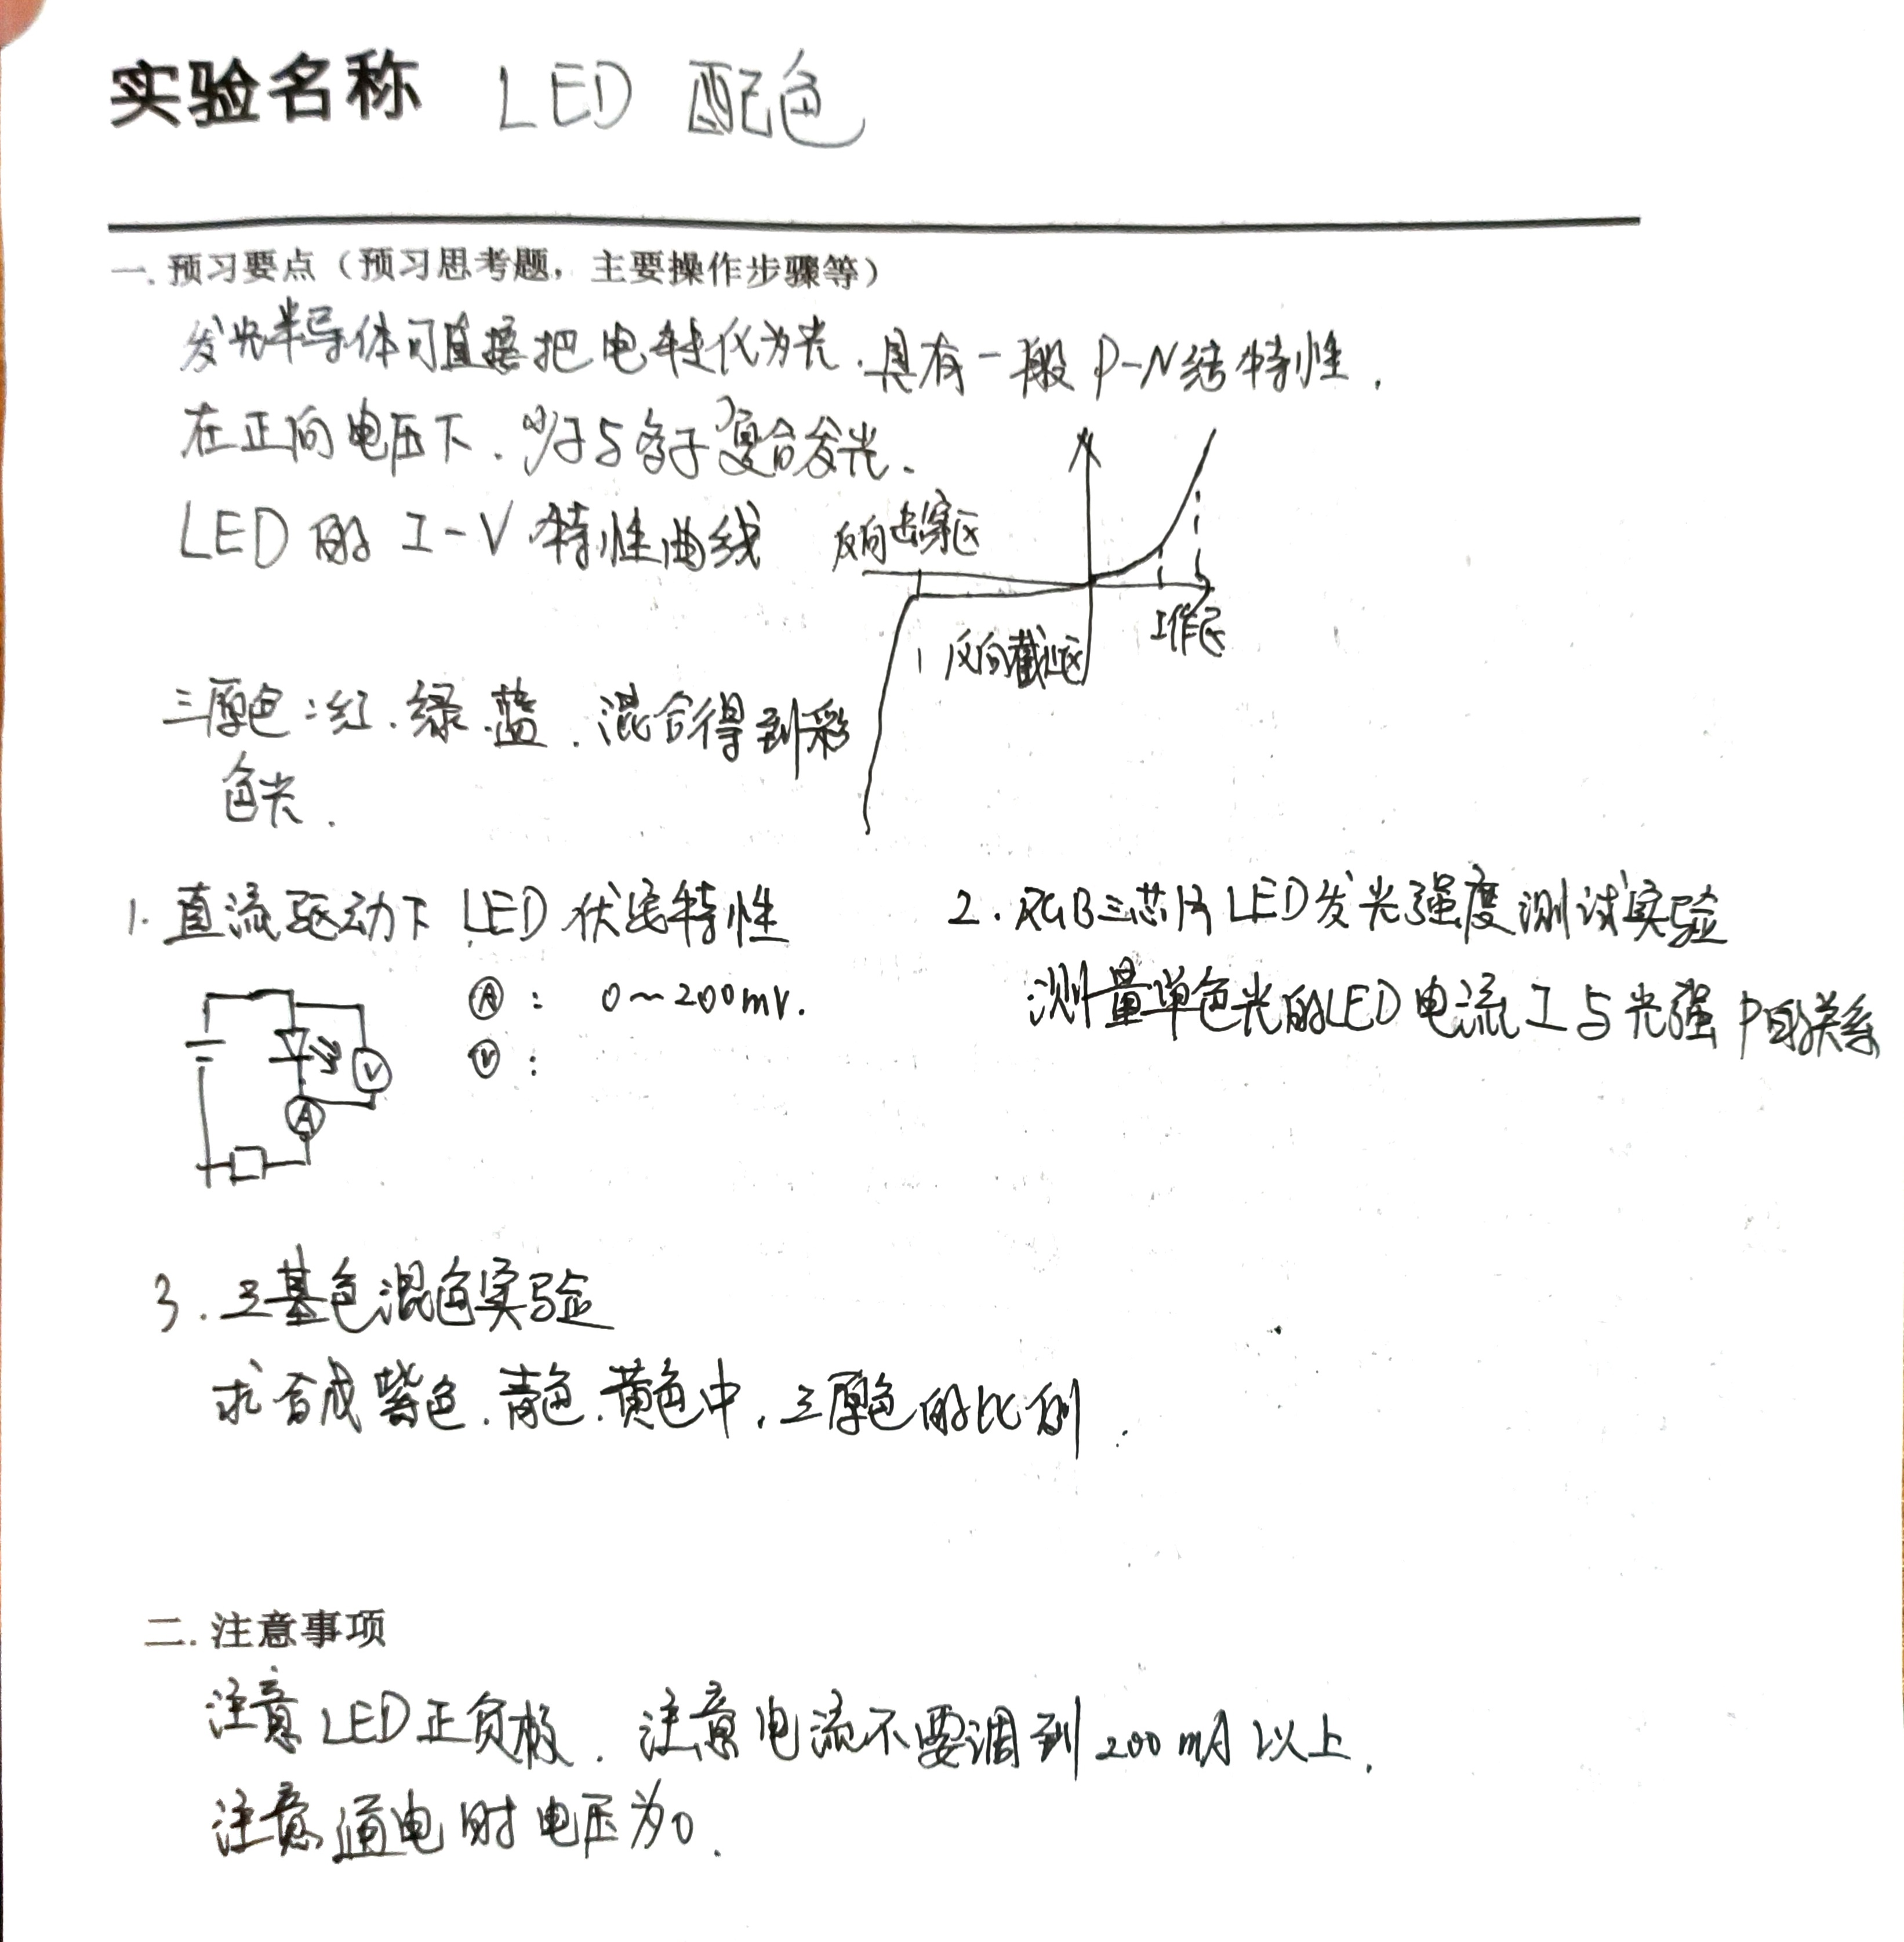 实验名称 LED 配色
一. 预习要点（预习思考题，主要操作步骤等）
发光半导体可直接把电转化为光. 具有一般P-N结特性.
在正向电压下. 少子与多子复合发光.
LED的 I-V 特性曲线
反向击穿区
反向截止区
工作区
三原色:红.绿.蓝.混合得到彩
色光.
1. 直流驱动下 LED 伏安特性
Ⓐ: 0~200mV.
Ⓥ:
V
A
2. RGB三芯片LED发光强度测试实验
测量单色光的LED电流I与光强P的关系
3. 三基色混色实验
求合成紫色.青色.黄色中,三原色的比例.
二. 注意事项
注意LED正负极. 注意电流不要调到200mA以上.
注意通电时电压为0.